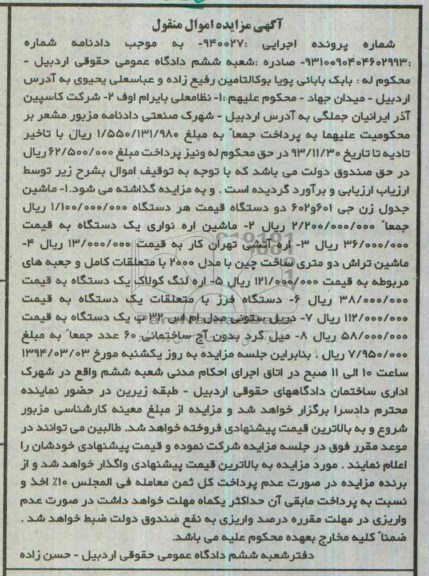 آگهی مزایده اموال منقول
شماره پرونده اجرایی :۹۴۰۰۲۷- به موجب دادنامه شماره
:۹۳۱۰۰۹۰۴۰۴۶۰۲۹۹۳- صادره :شعبه ششم دادگاه عمومی حقوقی اردبیل -
محکوم له : بابک بابائی پویا بوکالتامین رفیع زاده و عباسعلی یحیوی به آدرس
اردبیل - میدان جهاد - محکوم علیهم :۱- نظامعلی بایرام اوف ۲- شرکت کاسپین
آذر ایرانیان جملگی به آدرس اردبیل - شهرک صنعتی دادنامه مزبور مشعر بر
محکومیت علیهما به پرداخت جمعاً به مبلغ ۱/۵۵۰/۱۳۱/۹۸۰ ریال با تاخیر
تادیه تا تاریخ ۹۳/۱۱/۳۰ در حق محکوم له ونیز پرداخت مبلغ ۶۲/۵۰۰/۰۰۰ ریال
در حق صندوق دولت می باشد که با توجه به توقیف اموال بشرح زیر توسط
ارزیاب ارزیابی و برآورد گردیده است . و به مزایده گذاشته می شود.۱- ماشین
جدول زن جی ۶۰۱و۶۰۲ دو دستگاه قیمت هر دستگاه ۱/۱۰۰/۰۰۰/۰۰۰ ریال
جمعاً ۲/۲۰۰/۰۰۰/۰۰۰ ریال ۲- ماشین اره نواری یک دستگاه به قیمت
۳۶/۰۰۰/۰۰۰ ریال ۳- اره آتشی تهران کار به قیمت ۱۳/۰۰۰/۰۰۰ ریال ۴-
ماشین تراش دو متری ساخت چین با مدل ۲۰۰۰ با متعلقات کامل و جعبه های
مربوطه به قیمت ۱۲۱/۰۰۰/۰۰۰ ریال ۵- اره لنگ کولاک یک دستگاه به قیمت
۳۸/۰۰۰/۰۰۰ ریال ۶- دستگاه فرز با متعلقات یک دستگاه به قیمت
۱۱۲/۰۰۰/۰۰۰ ریال ۷- دریل ستونی مدل ام اس ۳۲ ب یک دستگاه به قیمت
۵۸/۰۰۰/۰۰۰ ریال ۸- میل گرد بدون آج ساختمانی ۶۰ عدد جمعاً به مبلغ
۷/۹۵۰/۰۰۰ ریال . بنابراین جلسه مزایده به روز یکشنبه مورخ ۱۳۹۴/۰۳/۰۳
ساعت ۱۰ الی ۱۱ صبح در اتاق اجرای احکام مدنی شعبه ششم واقع در شهرک
اداری ساختمان دادگاههای حقوقی اردبیل - طبقه زیرین در حضور نماینده
محترم دادسرا برگزار خواهد شد و مزایده از مبلغ معینه کارشناسی مزبور
شروع و به بالاترین قیمت پیشنهادی فروخته خواهد شد. طالبین می توانند در
موعد مقرر فوق در جلسه مزایده شرکت نموده و قیمت پیشنهادی خودشان را
اعلام نمایند . مورد مزایده به بالاترین قیمت پیشنهادی واگذار خواهد شد و از
برنده مزایده در صورت عدم پرداخت کل ثمن معامله فی المجلس ۱۰٪ اخذ و
نسبت به پرداخت مابقی آن حداکثر یکماه مهلت خواهد داشت در صورت عدم
واریزی در مهلت مقرره درصد واریزی به نفع صندوق دولت ضبط خواهد شد .
ضمناً کلیه مخارج بعهده محکوم علیه می باشد.
دفترشعبه ششم دادگاه عمومی حقوقی اردبیل - حسن زاده